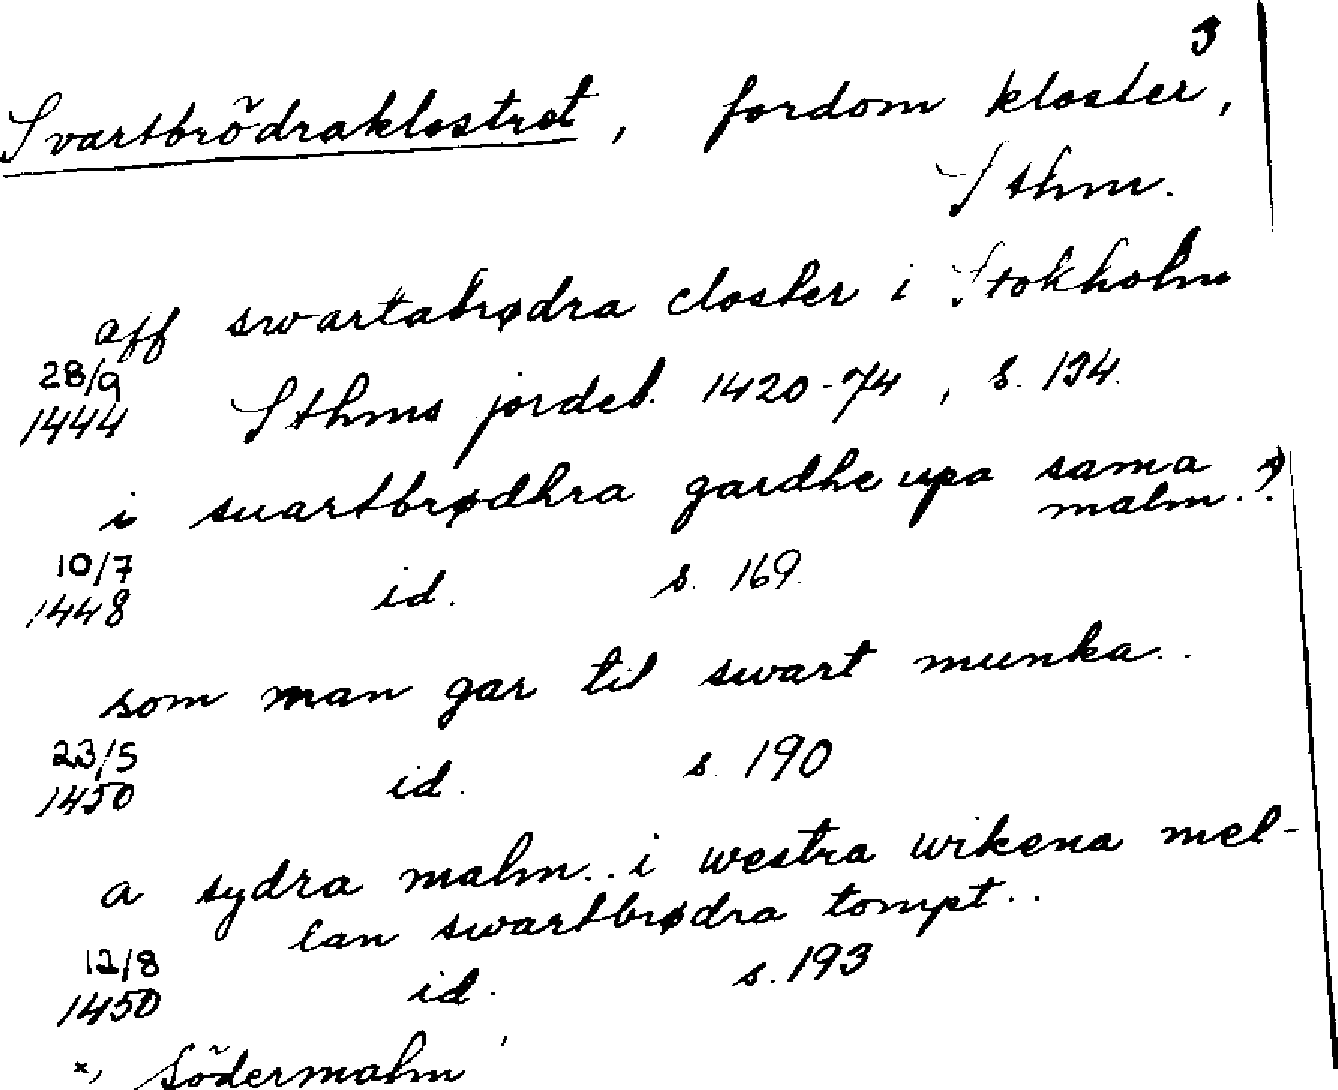 3
Svartbrödraklostret, fordom kloster,
Sthm.
aff swartabrødra closter i Stokholm
28/9
1444 Sthms jordeb. 1420-74, s. 134.
i suartbrødhra gardhe upa sama
malm..
10/7
1448 id. s. 169.
som man gar til swart munka..
23/5
1450 id. s. 190
a sydra malm.. i westra wikena mel-
lan swartbrødra tompt..
12/8
1450 id. s. 193
x) Södermalm